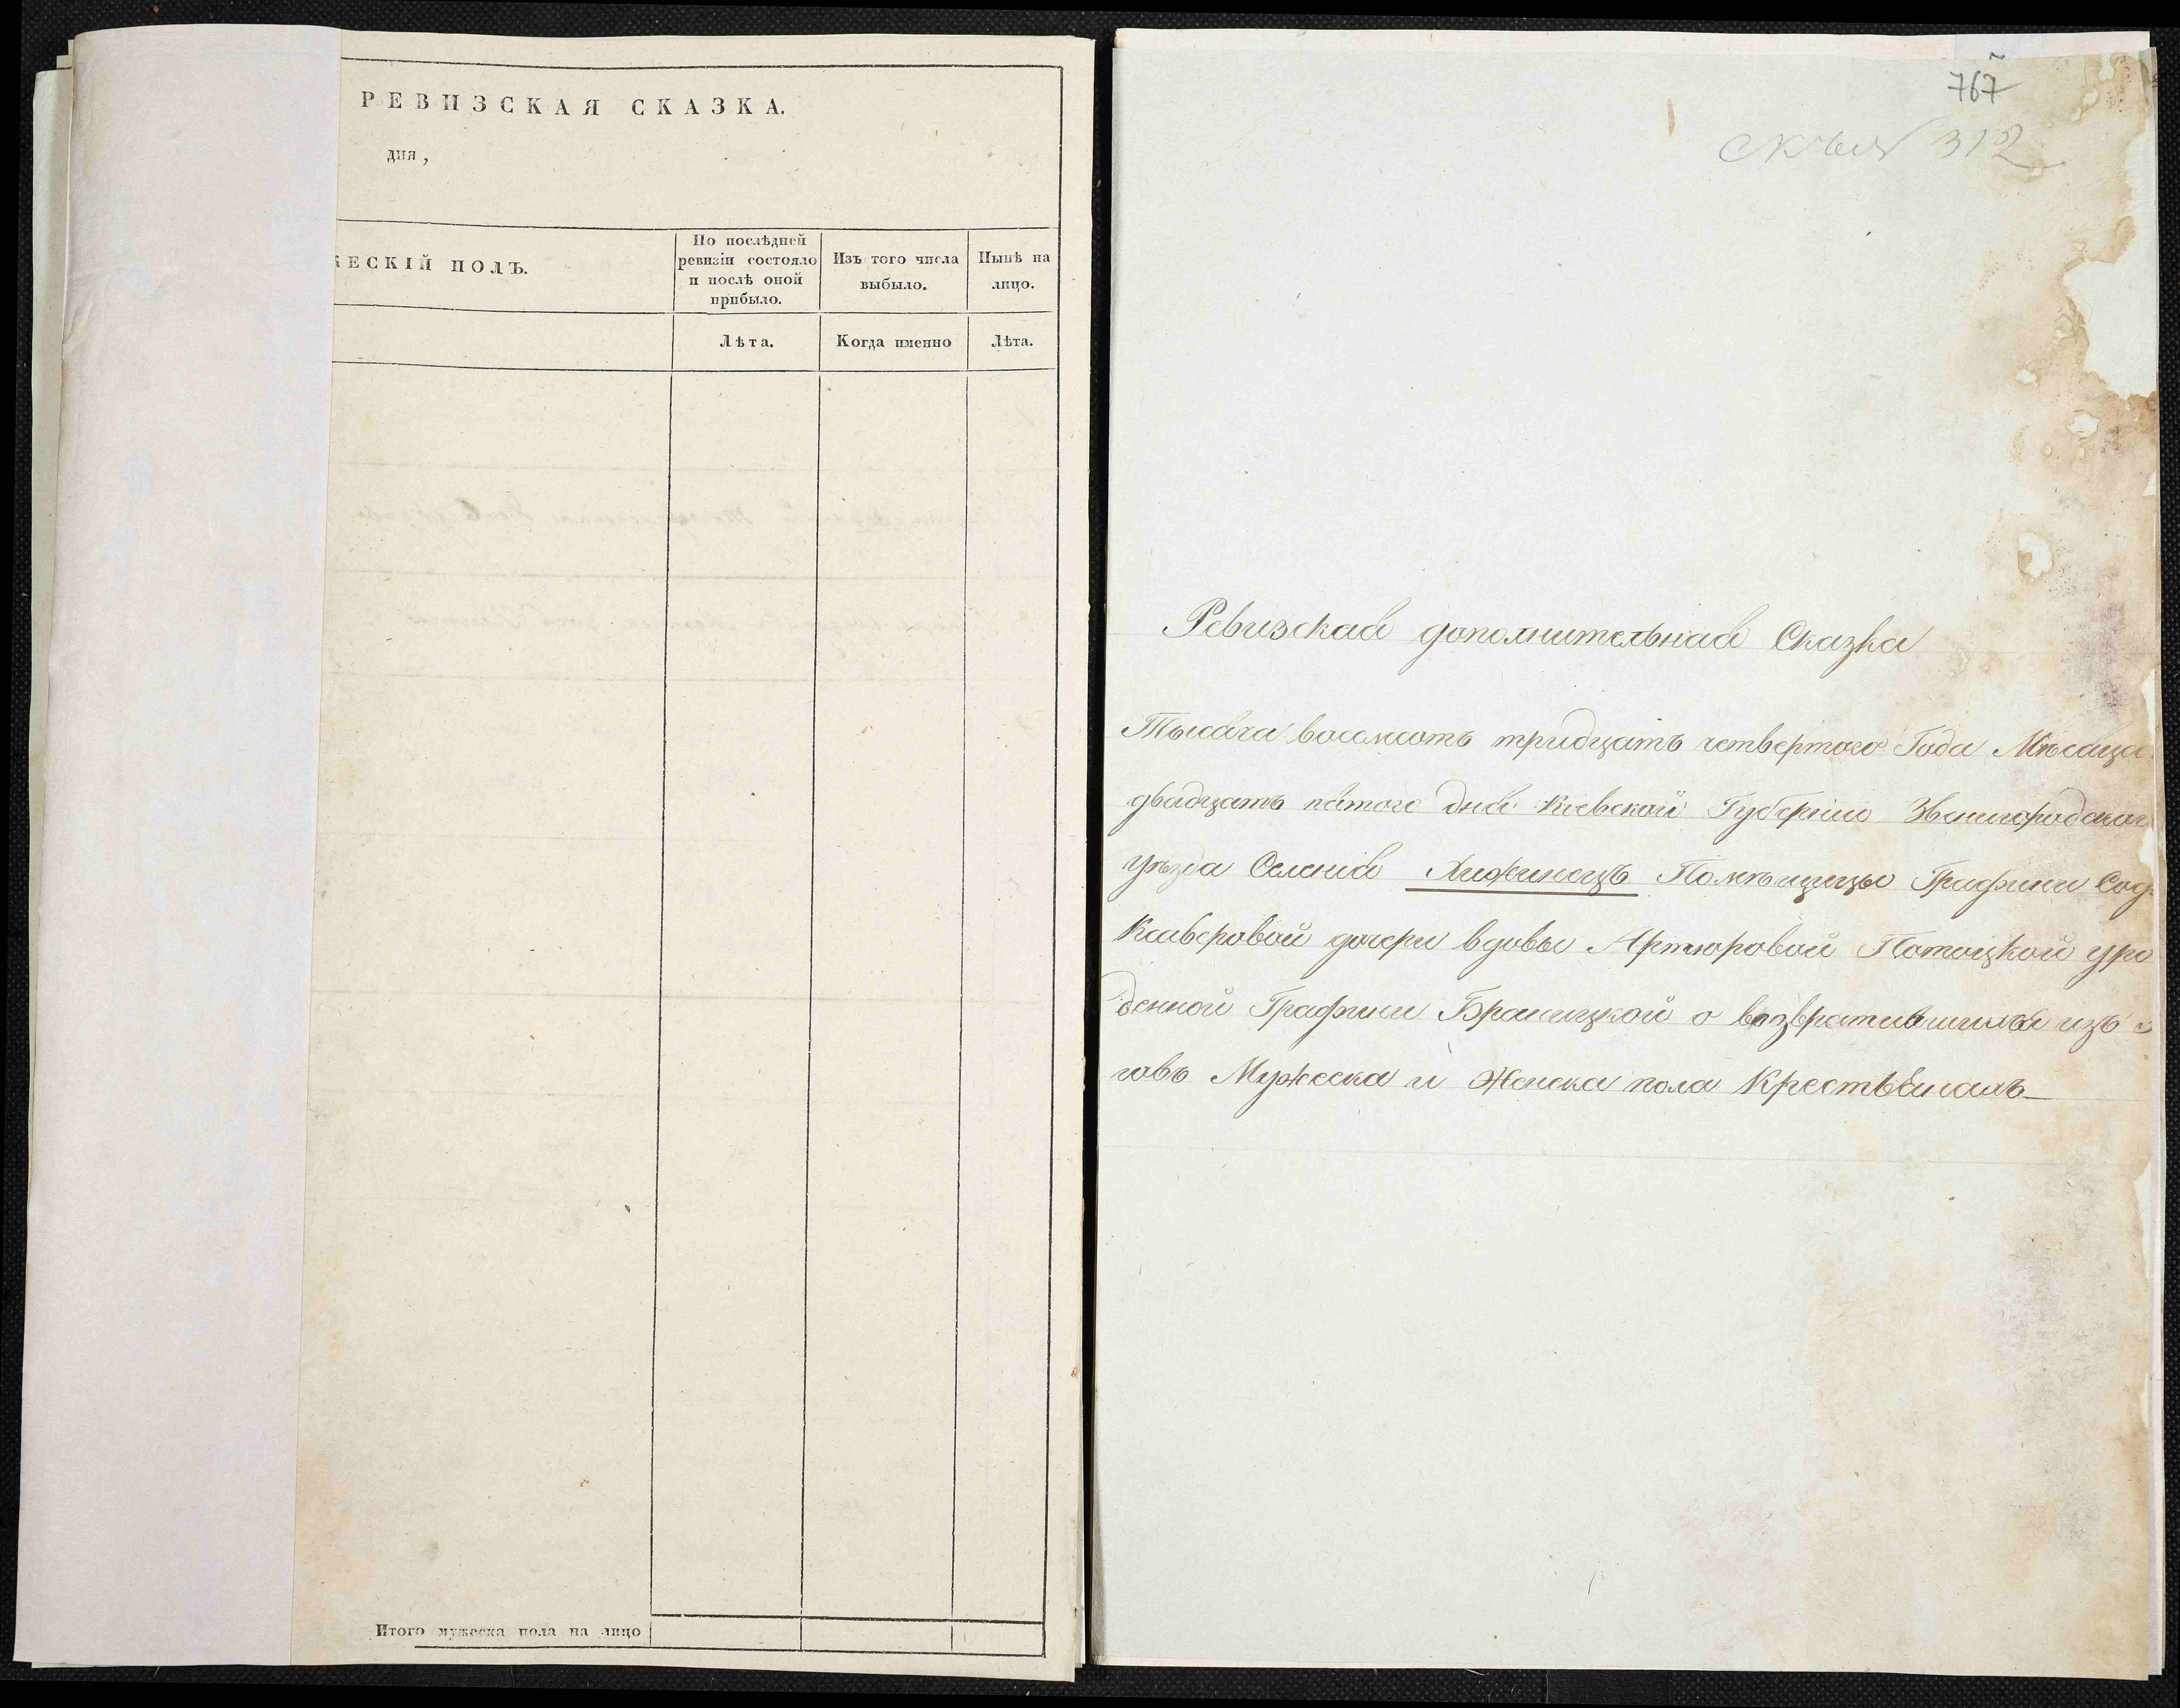 РЕВИЗСКАЯ СКАЗКА.
дня,
ЖЕСКІЙ ПОЛЪ.
По послѣдней ревизіи состояло и послѣ оной прибыло.
Изъ того числа выбыло.
Нынѣ на лицо.
Лѣта.
Когда именно
Лѣта.
Итого мужеска пола на лицо
767
312
Ревизская дополнительная Сказка
Тысяча восемсотъ тридцать четвертого Года Мѣсяца
двадцать пятого дня Кіевской Губерніи Звенигородског
уѣзда Селенія Хижинецъ Помѣщицы Графини Соф
Ксаверовой дочери вдовы Артюровой Потоцкой уро
денной Графини Браницкой о возвратившихся изъ
говъ Мужеска и Женска пола Крестьянахъ